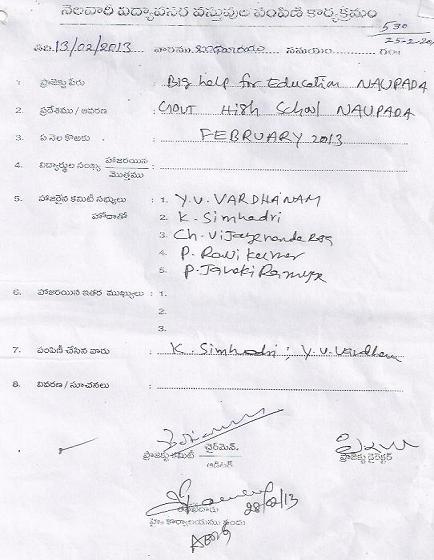 నెలవారీ విద్యావసర వస్తువుల పంపిణీ కార్యక్రమం
530
తేది. 13/02/2013 వారము బుధవారం సమయం గం॥
1. ప్రాజెక్టు పేరు : Big help for Education NAUPADA
2. ప్రదేశము / ఆవరణ : GOVT High School NAUPADA
3. ఏ నెల కొరకు : FEBRUARY 2013
4. విద్యార్థుల సంఖ్య హాజరయిన / మొత్తము :
5. హాజరైన కమిటీ సభ్యులు : 1. Y.V. VARDHANAM
హోదాతో 2. K. Simhadri
3. Ch. Vijayananda
4. P. Ravi Kumar
5. P. Janaki Ramayya
6. హాజరయిన ఇతర ముఖ్యులు : 1.
2.
3.
7. పంపిణీ చేసిన వారు : K. Simhadri ; Y.V. Vardhanam
8. వివరణ / సూచనలు :
ప్రాజెక్టు కమిటీ చైర్మెన్. / ఆడిటర్ ప్రాజెక్టు డైరెక్టర్
28/02/13
హెడ్ కార్యాలయము నందు